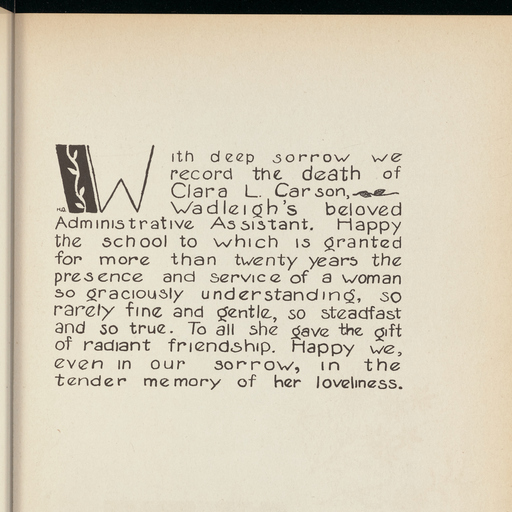 With deep sorrow we
record the death of
Clara L. Carson,
Wadleigh's beloved
Administrative Assistant. Happy
the school to which is granted
for more than twenty years the
presence and service of a woman
so graciously understanding, so
rarely fine and gentle, so steadfast
and so true. To all she gave the gift
of radiant friendship. Happy we,
even in our sorrow, in the
tender memory of her loveliness.